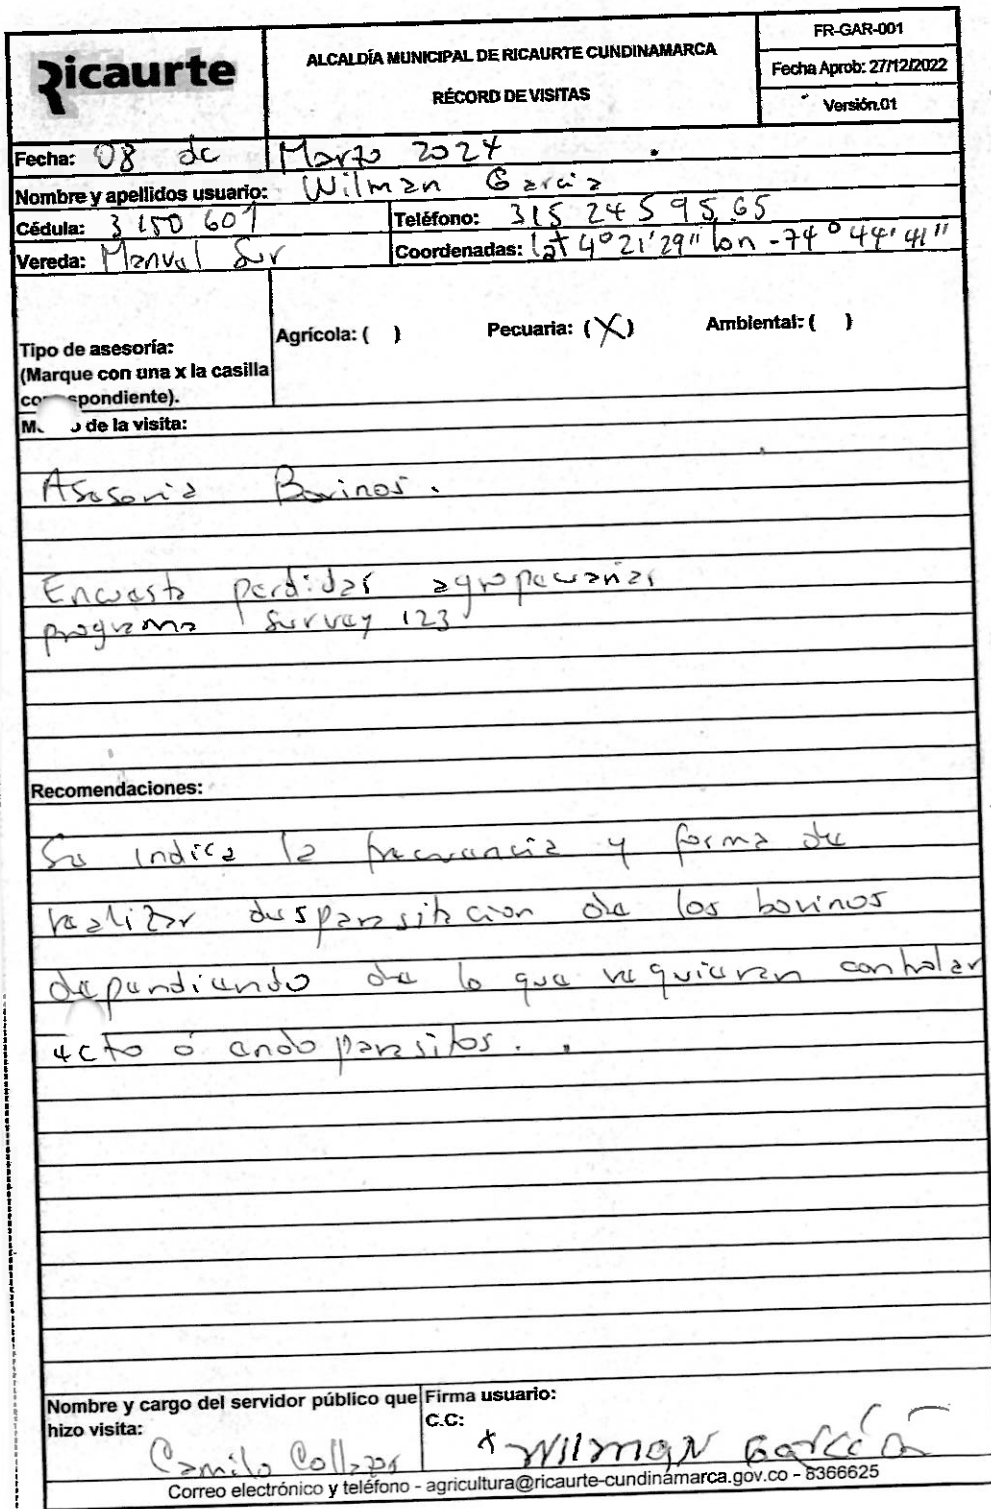 Ricaurte
ALCALDÍA MUNICIPAL DE RICAURTE CUNDINAMARCA
RÉCORD DE VISITAS
FR-GAR-001
Fecha Aprob: 27/12/2022
Versión.01
Fecha: 08 de Marzo 2024
Nombre y apellidos usuario: Wilman Garcia
Cédula: 3 150 601 Teléfono: 315 24 59 5 65
Vereda: Manuel Sur Coordenadas: lat 4° 21' 29" lon -74° 44' 41"
Tipo de asesoría:
(Marque con una x la casilla
correspondiente).
Agrícola: ( ) Pecuaria: (X) Ambiental: ( )
de la visita:
Asesoria Bovinos.
Encuesta perdidas agropecuarias
programa Survey 123
Recomendaciones:
Se indica la frecuencia y forma de
realizar desparasitacion de los bovinos
dependiendo de lo que requieran controlar
ecto ó endo parasitos. .
Nombre y cargo del servidor público que
hizo visita:
Camilo Collazos
Firma usuario:
C.C:
x WilmaN García
Correo electrónico y teléfono - agricultura@ricaurte-cundinamarca.gov.co - 8366625